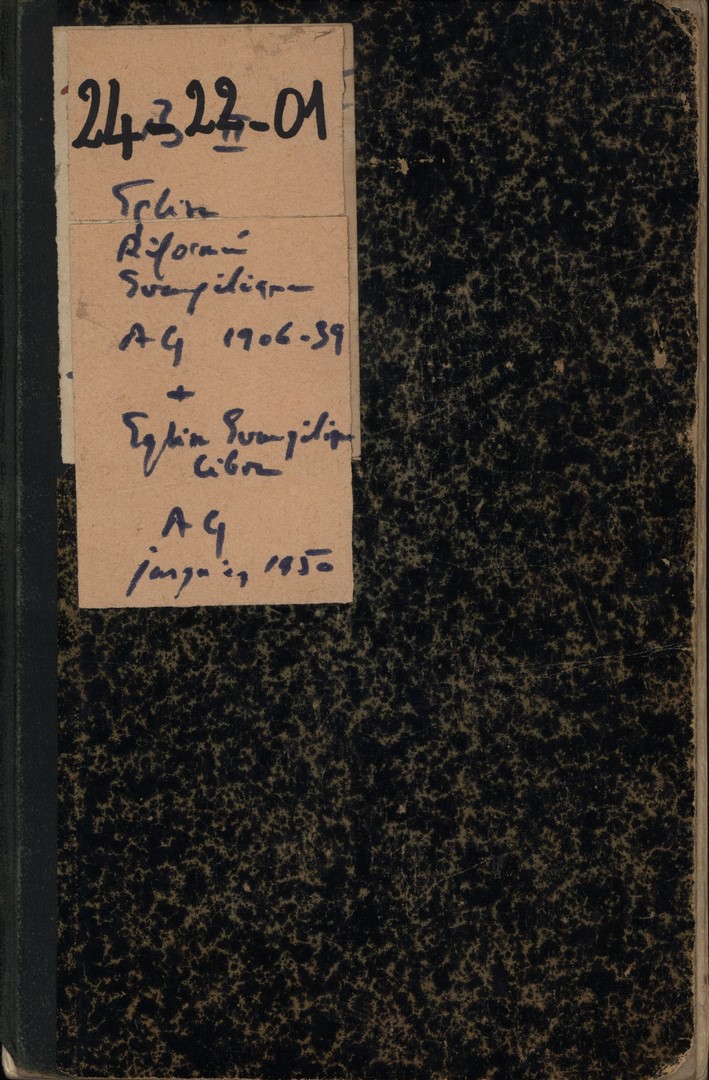 24-22-01
Eglise
Réformée
Evangélique
AG 1906-39
+
Eglise Evangélique
libre
AG
jusqu'en 1950